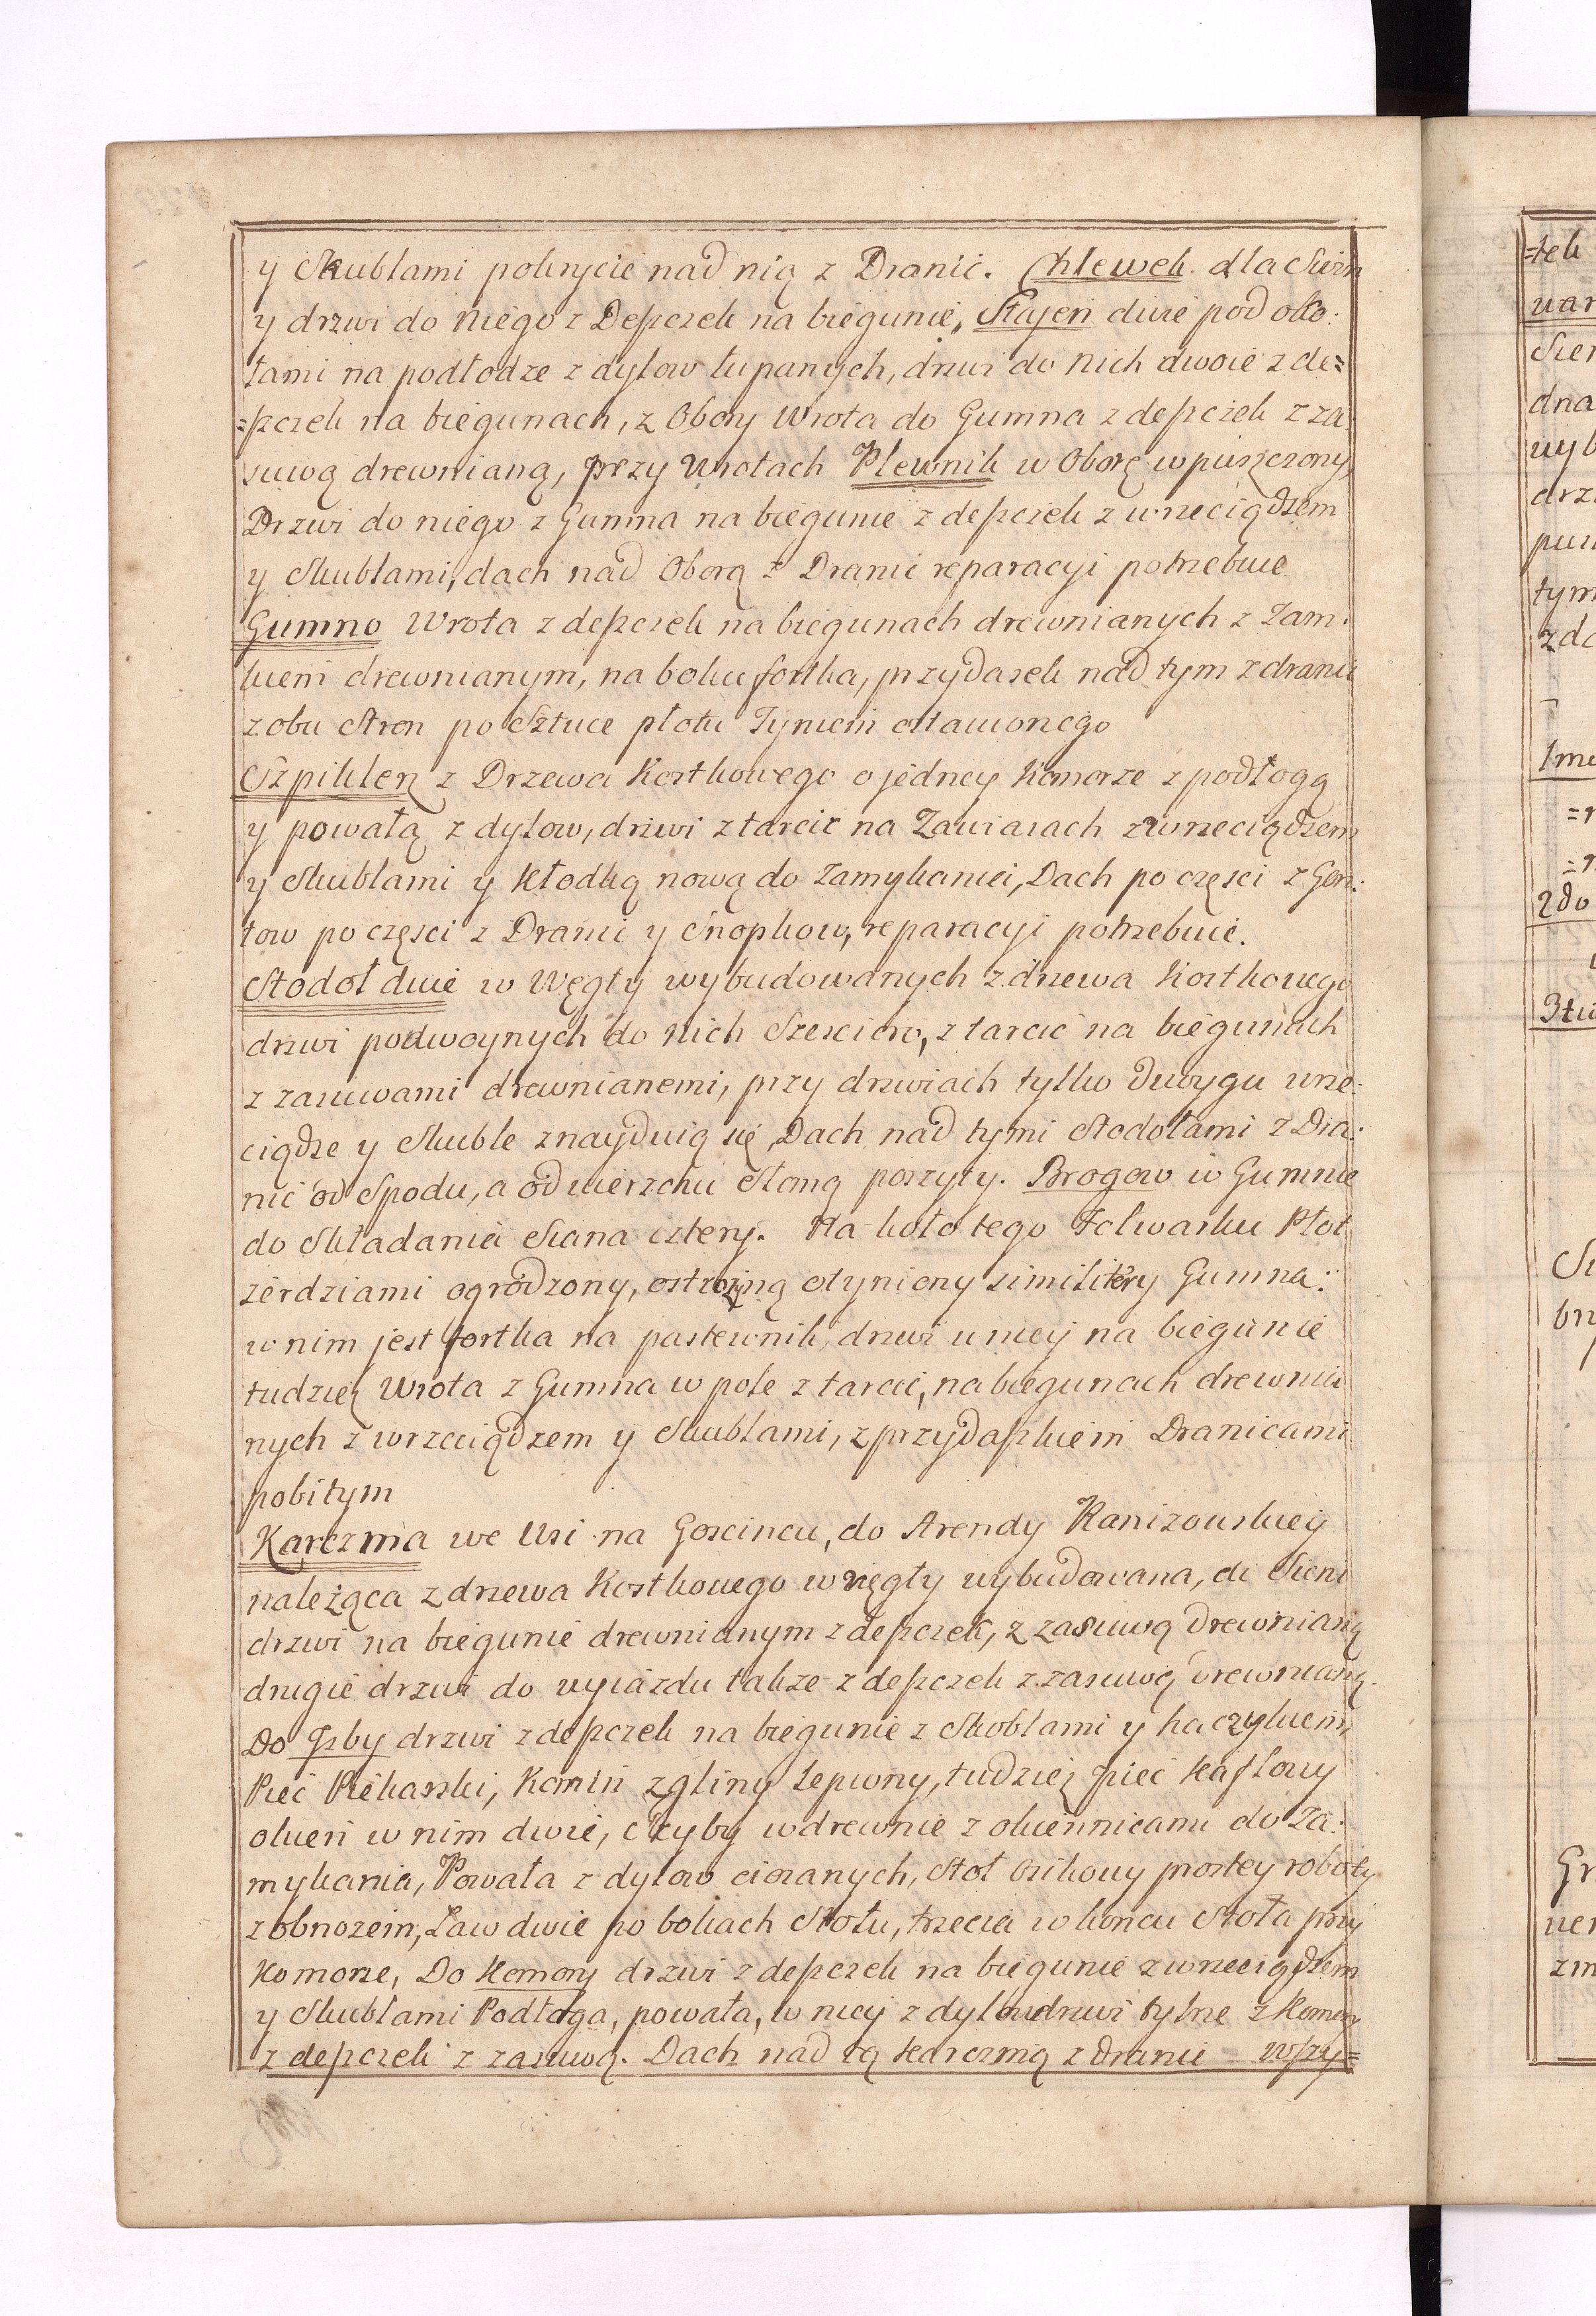 y Skublami pokrycie nad nią z Dranic. Chlewek dla Swin
y drzwi do niego z Depczek na biegunie, Stayen dwie pod obo:
rami na podłodze z dylow łupanych, drzwi do nich dwoie z de=
=pczek na biegunach, z Obory Wrota do Gumna z depczek z za
suwą drewnianą, przy Wrotach Plewnik w Oborę wpuszczony,
Drzwi do niego z Gumna na biegunie z depczek z wrzeciądzem
y Skublami, dach nad Oborą z Dranic reparacyi potrzebuie
Gumno Wrota z depczek na biegunach drewnianych z Zam:
kiem drewnianym, na boku fortka, przydaszek nad tym z dranic
z obu Stron po Sztuce płotu Tyniem ostawionego
Szpiklerz z Drzewa Kostkowego o jedney Komorze z podłogą
y powałą z dylow, drzwi z tarcic na Zawiasach z wrzeciądzem
y Skublami y Kłodką nową do Zamykania, Dach po częsci z Gon:
tow po częsci z Dranic y Snopkow, reparacyi potrzebuie.
Stodoł dwie w Węgły wybudowanych z drzewa Kostkowego
drzwi podwoynych do nich Szescioro, z tarcic na biegunach
z zasuwami drewnianemi, przy drzwiach tylko dwoygu wrze:
ciądze y Skuble znayduią się, Dach nad tymi Stodołami z Dra:
nic od Spodu, a od wierzchu Słomą poszyty. Brogow w Gumnie
do Składania Siana cztery. Na koło tego Folwarku Płot
żerdziami ogrodzony, ostrożyną otyniony similiter y Gumna:
w nim jest fortka na pastewnik, drzwi u niey na biegunie
tudziesz Wrota z Gumna w pole z tarcic, na biegunach drewnia
nych z wrzeciądzem y Skublami, z przydaszkiem Dranicami
pobitym
Karczma we Wsi na Goscincu, do Arendy Ranizowskiey
należąca z drzewa Kostkowego w węgły wybudowana, do Sieni
drzwi na biegunie drewnianym z depczek, z zasuwą Drewnianą
drugie drzwi do wyiazdu takze z depczek z zasuwą drewnianą.
Do Jzby drzwi z depczek na biegunie z Skoblami y haczykiem,
Piec Piekarski, Komin z gliny lepiony, tudziesz piec Kaflowy
okien w nim dwie, szyby w drewnie z okiennicami do Za:
mykania, Powała z dylow ciosanych, Stoł Osikowy prostey roboty
z obnozem, Ław dwie po bokach Stołu, trzecia w koncu Stoła przy
Komorze, Do Komory drzwi z depczek na biegunie z wrzeciądzem
y Skublami Podłoga, powała, w niey z dylow drzwi tylne z Komory
z depczek z zasuwą. Dach nad tą Karczmą z dranic Wszy=